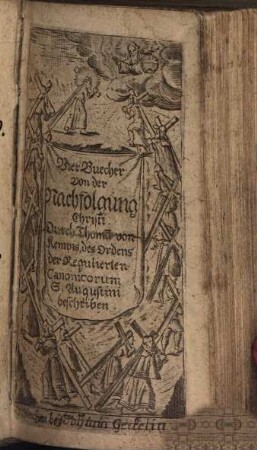 Vier Buecher
von der
Nachfolgung
Christi
Durch Thomā von
Kempis, des Ordens
der Regulierten
Canonicorum
S. Augustini
beschriben
bey Johann